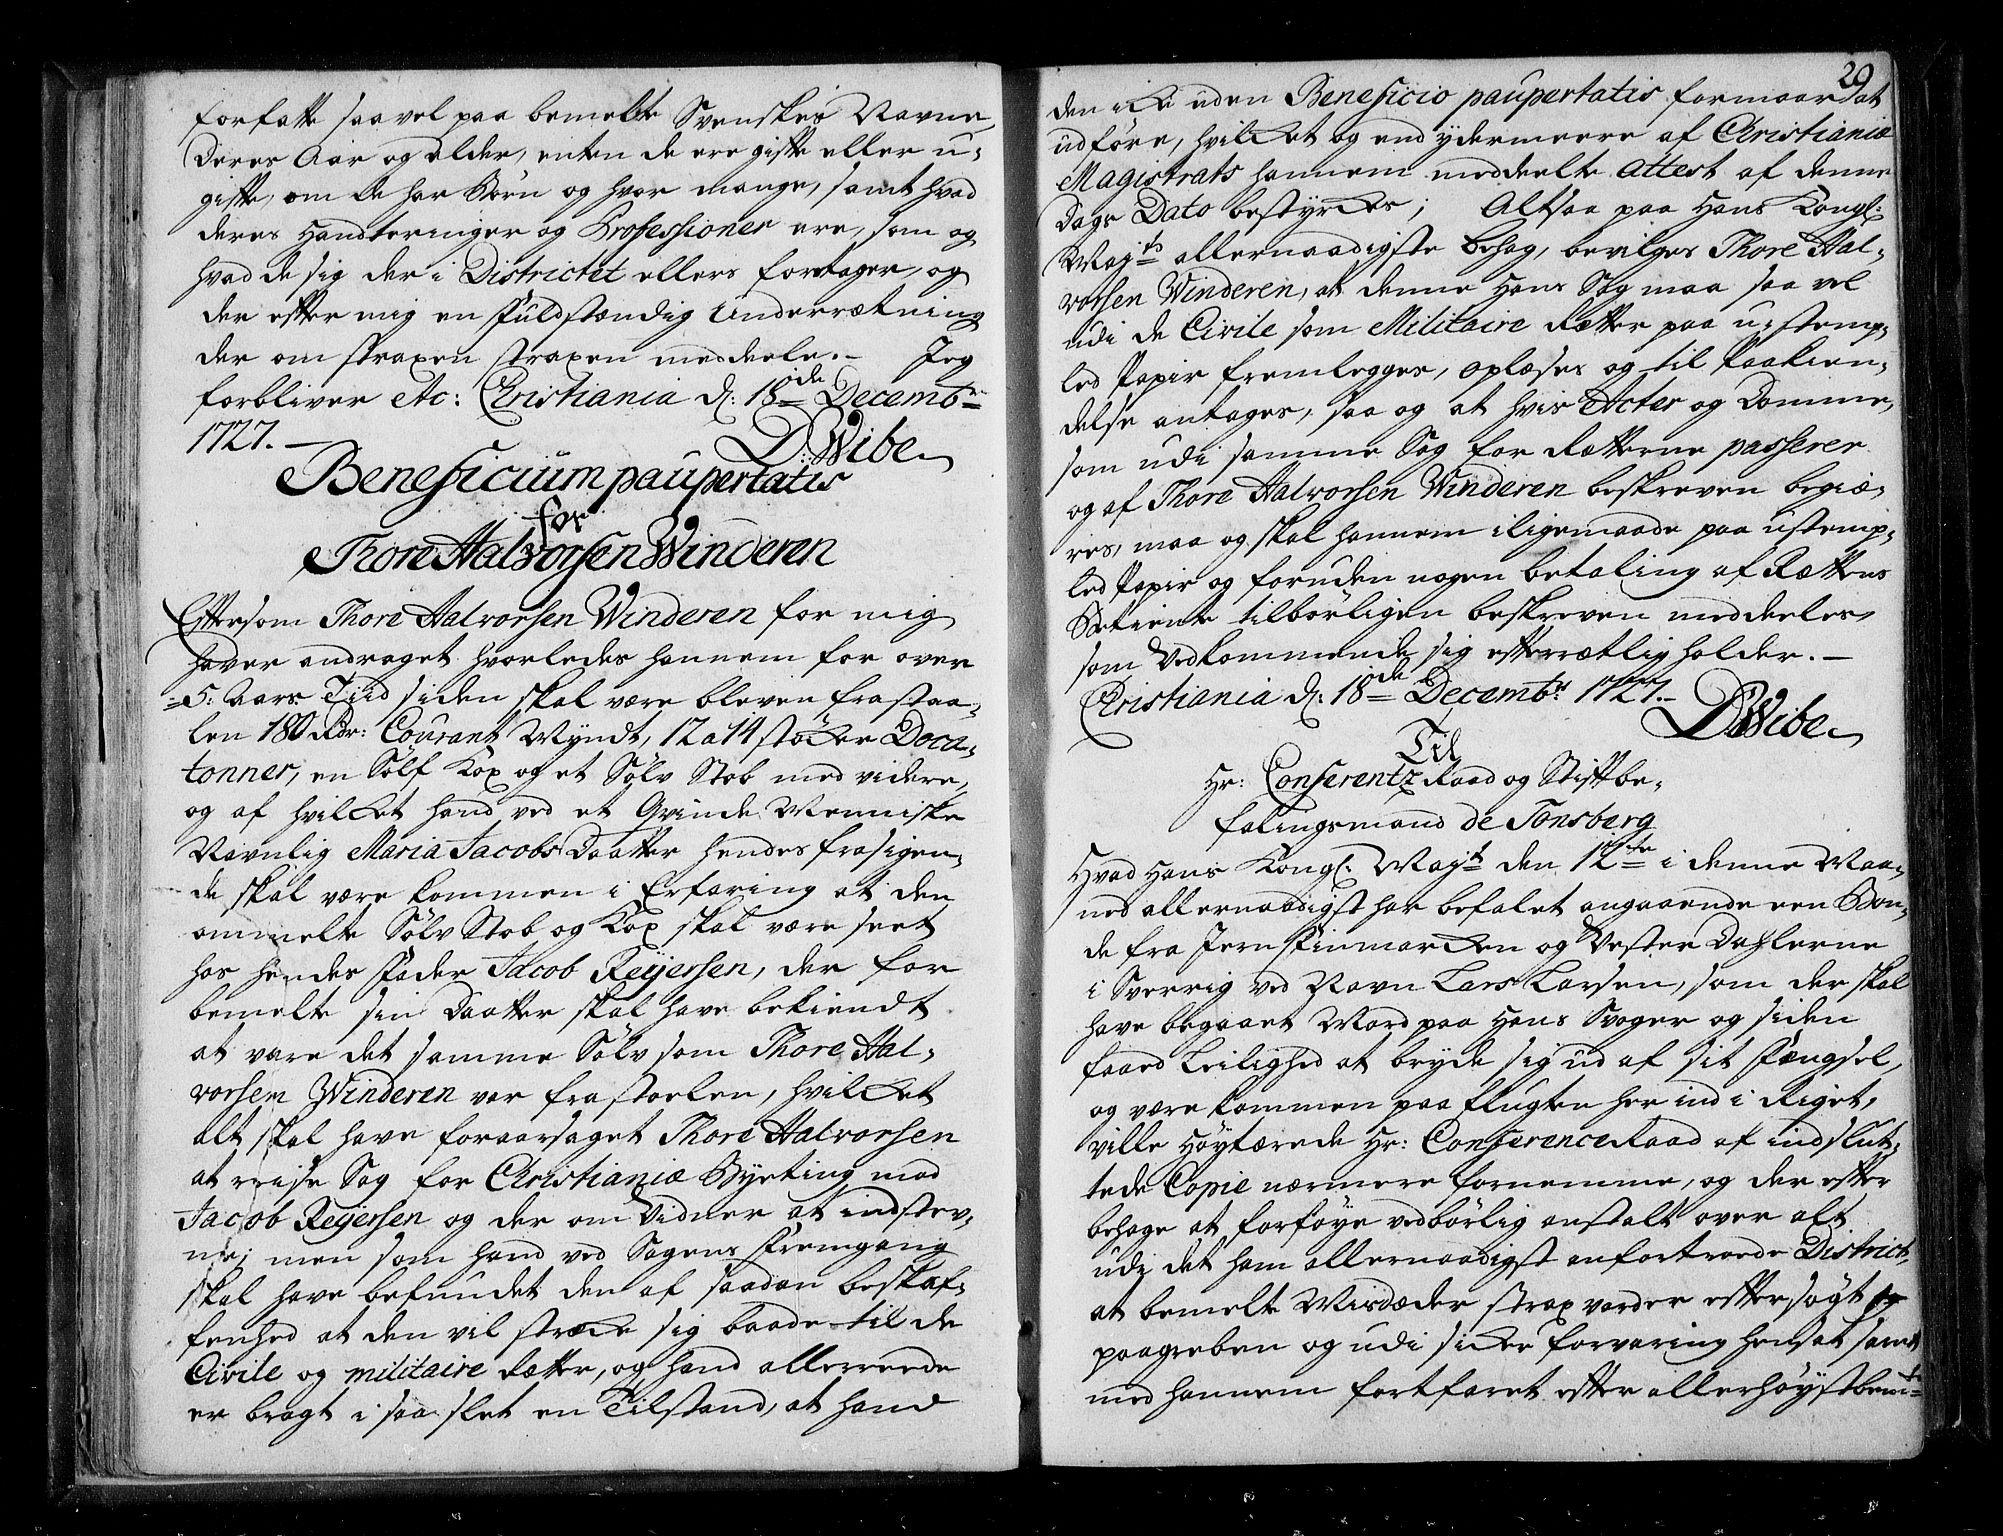 forfatte saavel paa bemelte Svenskes Navne,
deres Aar og Alder, enten de ere gifte eller u-
gifte, om de har Börn og hvor mange, samt hvad
deres Handteringer og Professioner ere, som og
hvad de sig der i Districtet ellers foretager, og
der efter mig en Fuldstændig Underrætning
der om straxen straxen meddeele.- Jeg
forbliver etc: Christiania d: 18de Decembr
1727.-
D: Wibe
Beneficium paupertatis
for
Thore Halvorsen Winderen
Eftersom Thore Halvorsen Winderen for mig
haver andraget hvorledes hannem for over
5: Aars Tiid siden skal være bleven frastaa-
len 180 Rdr: Courant Myndt, 12 a 14 stöcker Duca-
tonner, en Sölf Kop og et Sölv Stob med videre,
og af hvilcket hand ved et Qvinde Menniske
Navnlig Maria Jacobs Daatter hendes frasigen-
de skal være kommen i Erfaring at den
ommelte Sölv Stob og Kop skal være seet
hos hendes Fader Jacob Reyersen, der for
bemelte sin Daatter skal have bekiendt
at være det samme Sölv som Thore Hal-
vorsen Winderen var frastoelen, hvilcket
alt skal have foraarsaget Thore Halvorsen
at reise Sag for Christianiæ Byeting mod
Jacob Reyersen og der om Vidner at indstev-
ne; men som hand ved Sagens Fremgang
skal have befundet den af saadan beskaf-
fenhed at den vil strecke sig baade til de
Civile og militaire Rætter, og hand allerreede
er bragt i saa slet en Tilstand, at hand
20
den icke uden Beneficio paupertatis formaar at
udföre, hvilcket og end ydermeere af Christianiæ
Magistrats hannem meddeelte Attest af denne
Dags Dato bestyrckes; Altsaa paa Hans Kongl:
Mayts allernaadigste behag, bevilges Thore Hal-
vorsen Winderen, at denne Hans Sag maa saa vel
udi de Civile som Militaire Rætter paa u-stemp-
led Papir fremlegges, oplæses og til Paakien-
delse antages, saa og at hvis Acter og Domme,
som udi samme Sag for Rætterne passerer
og af Thore Halvorsen Winderen beskreven begiæ-
res, maa og skal hannem iligemaade paa ustemp-
led Papir og foruden nogen betaling af Rættens
Betiente tilbörligen beskreven meddeeles,
som Vedkommende sig efterrætlig holder.-
Christiania d: 18de Decembr: 1727.-
D: Wibe
Til
Hr: Conferentz Raad og Stiftbe-
falingsmand de Tonsberg
Hvad Hans Kongl: Mayt den 12te i denne Maa-
ned allernaadigst har befalet angaaende een Bon-
de fra Jern Finmarcken og Vester Dahlerne
i Sverrig ved Navn Lars Larsen, som der skal
have begaaet Mord paa Hans Svoger og siden
faaed Leilighed at bryde sig ud af sit Fængsel,
og være kommen paa flugten her ind i Riget,
ville Höytærede Hr: Conference Raad af indslut-
tede Copie nærmere fornemme, og der efter
behage at forföye vedbörlig anstalt over alt
udi det ham allernaadigst anfortroede District,
at bemelte Misdæder strax vorder eftersögt
paagreben og udi sicker forvaring hensat samt
med hannem fortfaret efter allerhöystbemte